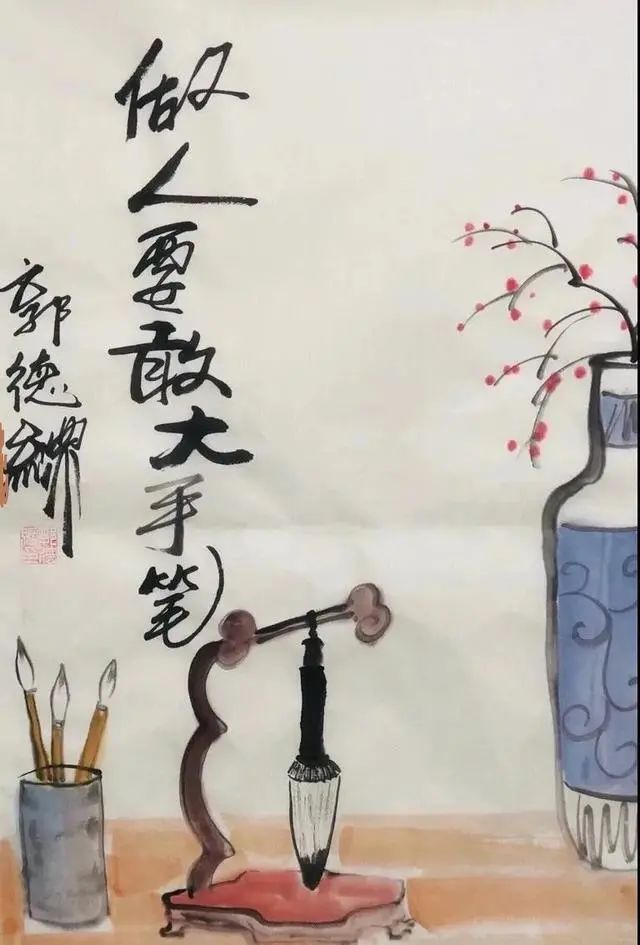 做人要敢大手笔
郭德